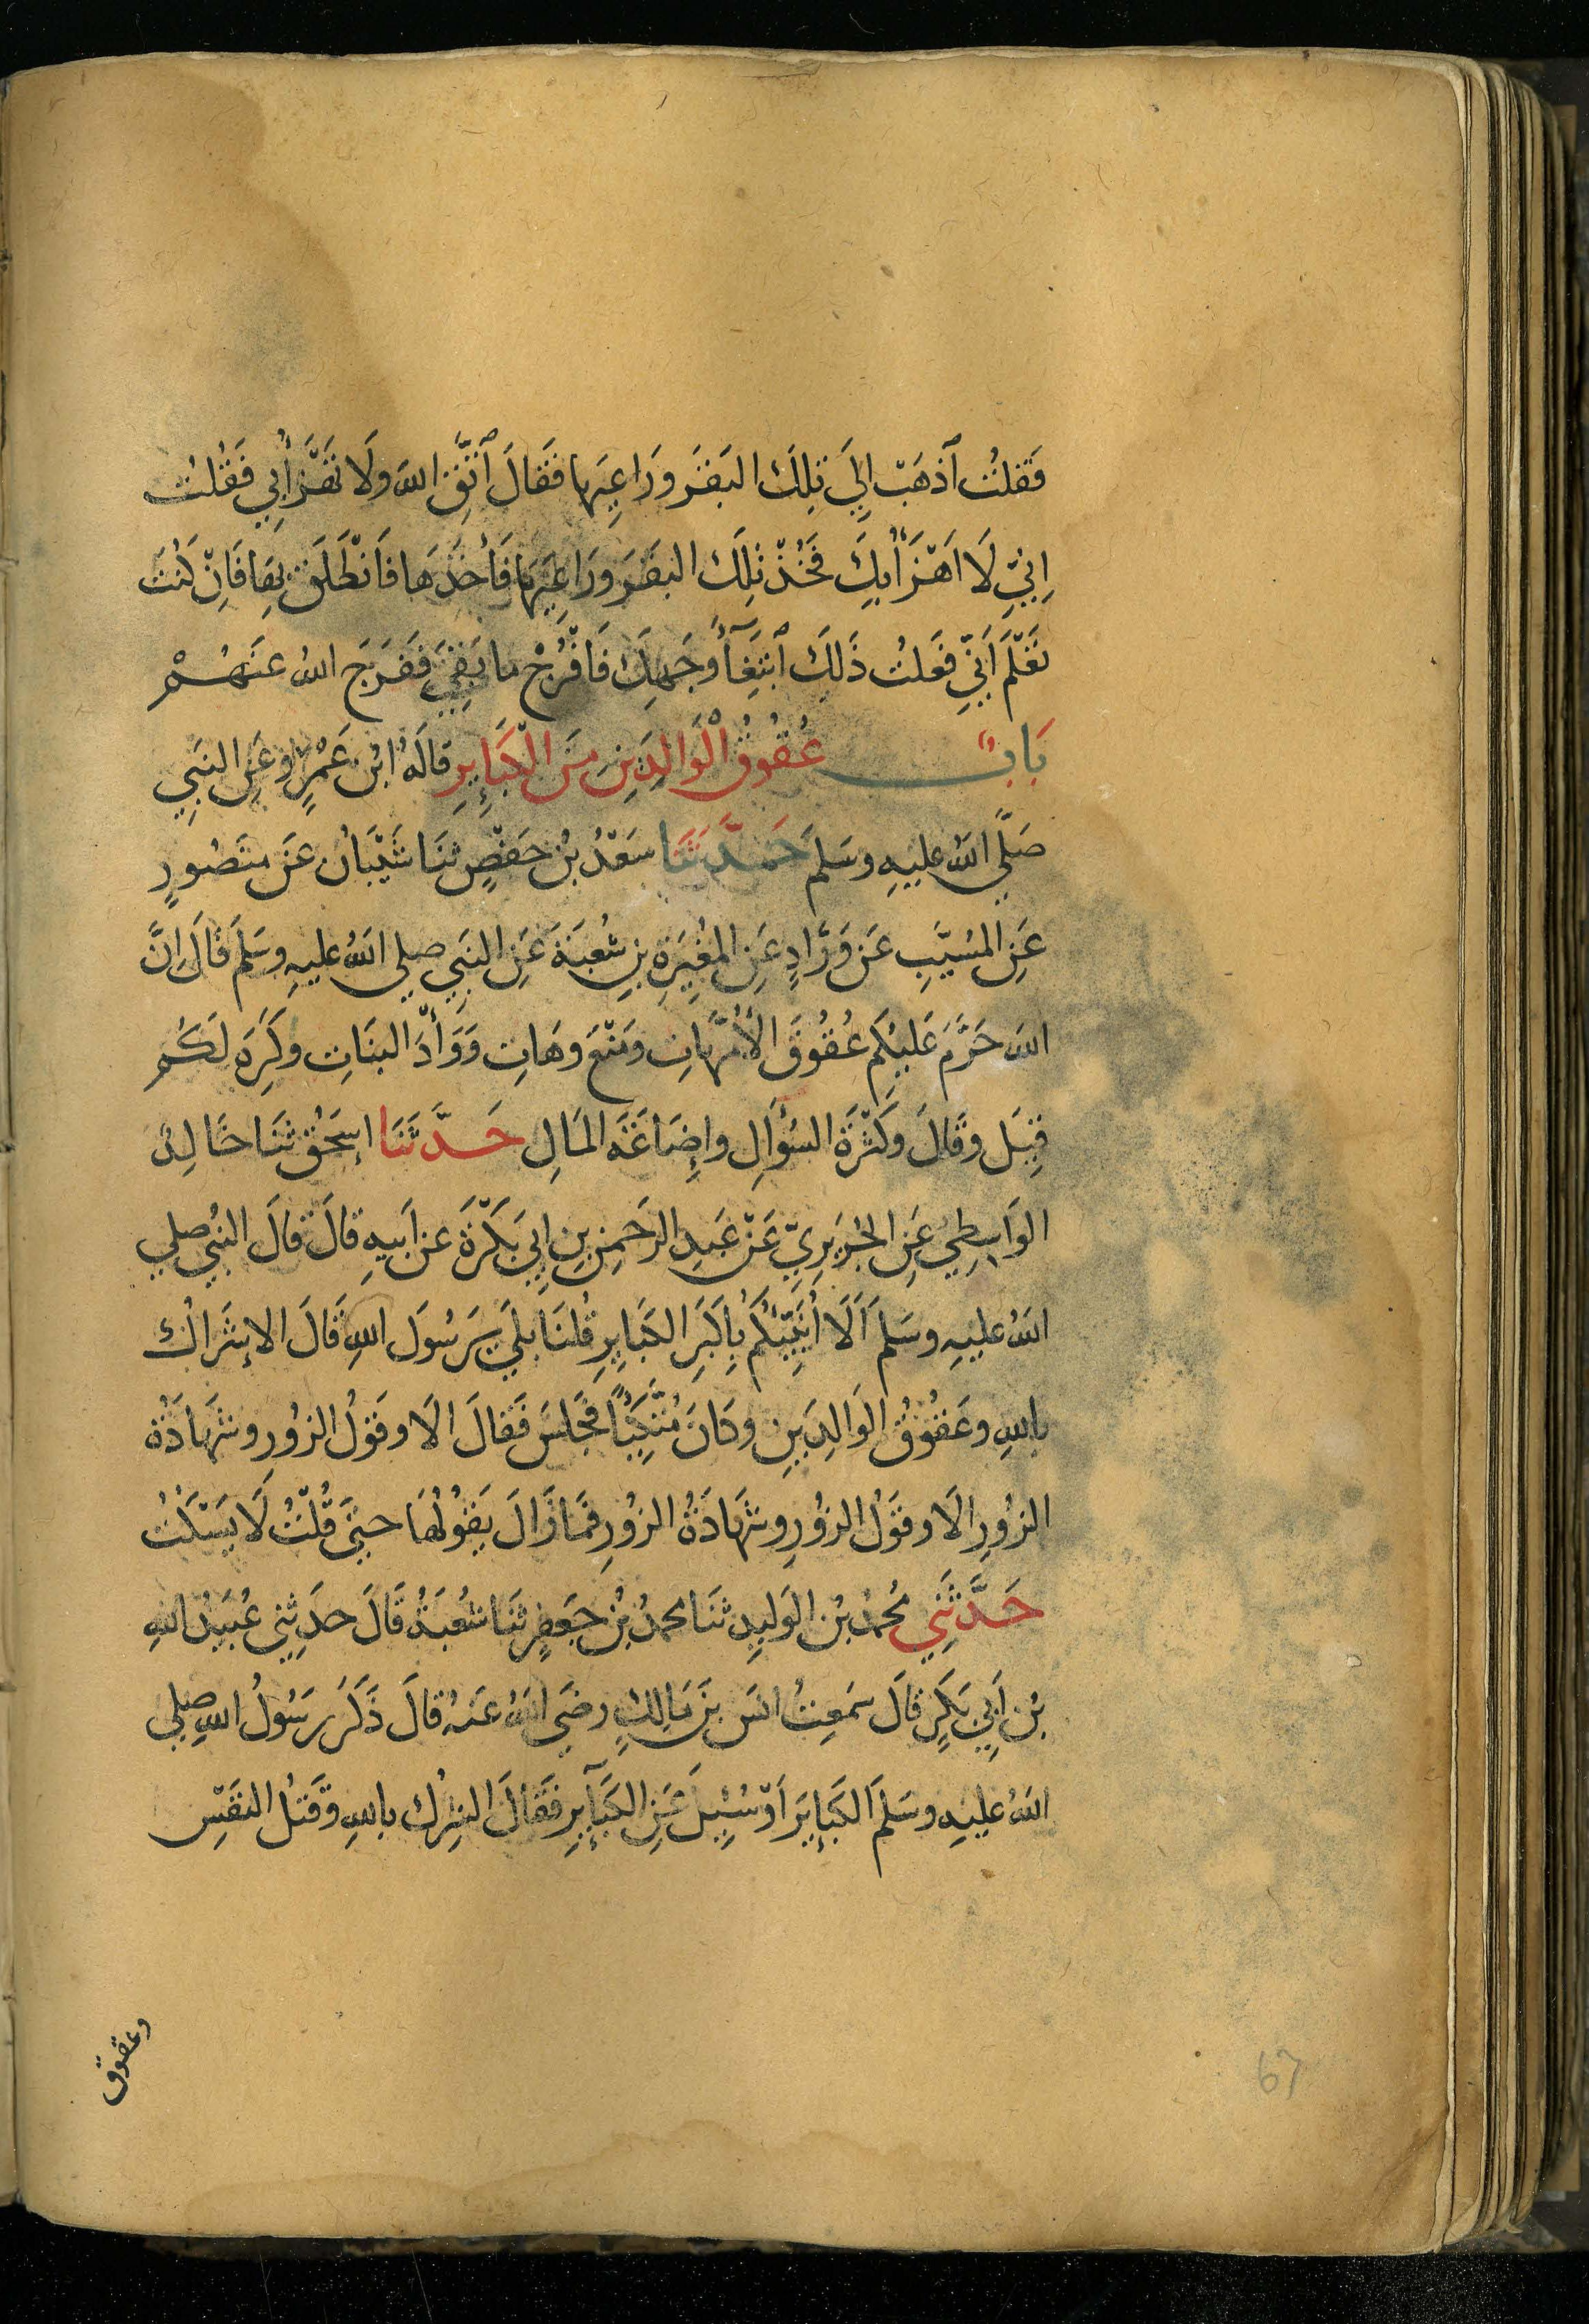 فَقلتُ اَذهَبْ اِلَي تِلكَ البَقَر وَرَاعِيها فَقَالَ اتَّقِ اللهَ ولَا تَهْزَأ بِي فَقُلتُ
اِنّيِ لَا اَهْزَأُ بِكَ فَخُذْ تِلكَ البَقَرَ ورَاعِيَهَا فَأَخَذَهَا فَانْطَلَقَ بِهَا فَاِنْ كُنتَ
تَعْلَمُ اَنّيِ فَعَلتُ ذَلِكَ ابْتِغَآءَ وَجهِكَ فَافْرُجْ ما بَقِيَ فَفَرَجَ اللهُ عنَهُمْ
بَابٌ عُقُوقُ الْوَالِدَينِ مِنَ الْكَبَايِرِ قَالَهُ ابْن عَمْرٍو عَنِ النبَيِ
صَلَّي اللهُ عليهِ وسَلم حَدَّثَنَا سَعْدُ بْنُ حَفْصٍ ثنَا شَيْبَانُ عَن منصُورٍ
عَنِ المسُيَّبِ عَن وَرَّادٍ عَنِ المغِيرَةِ بنِ شُعبَةَ عَنِ النبَيِ صلي اللهُ عليهِ وسَلم قَالَ اِنَّ
اللهَ حَرَّمَ عَليكُم عُقُوقَ الأُمَّهَاتِ ومَنْعَ وهَاتِ وَوَأْدَ البنَاتِ وكَرِهَ لَكُم
قِيَل وقَالَ وكَثْرَةَ السُؤَالِ وإِضَاعَةَ المَالِ حَدَّثَنَا اسِحَقُ ثنَا خَالِدٌ
الوَاسِطِي عَنِ الجُرَيرِيّ عَنْ عَبدِ الرَحَمنِ بنِ اَبِي بَكْرَةَ عن اَبيهِ قالَ قالَ النبُي صلي
اللهُ عليهِ وسَلم اَلَا اُنَبِّيُكُم بِاَكبَرِ الكَبَايِرِ قُلنَا بلَي يرَسُولَ اللهِ قَالَ الاِشرَاكُ
باللهِ وعُقُوقُ الوَالِدَينِ وكانَ مُتَّكِئًا فَجَلسَ فقَالَ الَا وقَولُ الزُورِ وشَهَادَةُ
الزُورِ الَا وقَولُ الزُورِ وشَهَادَةُ الزُورِ فمَا زَالَ يَقُولُهَا حتَيَّ قُلْتُ لَا يَسْكُتُ
حَدَّثَنِي مُحمدُ بْن الوَليِدِ ثنَا محمدُ بْنُ جَعفَرٍ ثنَا شُعبَةُ قَالَ حدَثِني عُبَيدُ اللهِ
بْن اَبِي بَكرٍ قَالَ سَمعِتُ انسَ بنَ مَالِكٍ رضَي اللهُ عَنهُ قالَ ذَكَرَ رَسُولُ اللهِ صلي
اللهُ عليهِ وسَلم الكَبَايِرَ اَوْ سُيِلَ عَنِ الكَبَآيِرِ فقَالَ الشِركُ باللهِ وقَتلُ النفَسِ
وعقوق
67